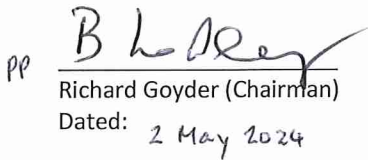 pp
Richard Goyder (Chairman)
Dated: 2 May 2024